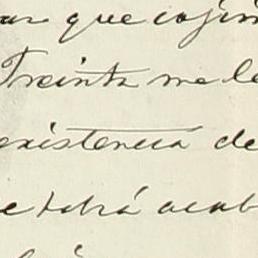 que cojin
Treinta me le
existencia de
e habrá acab